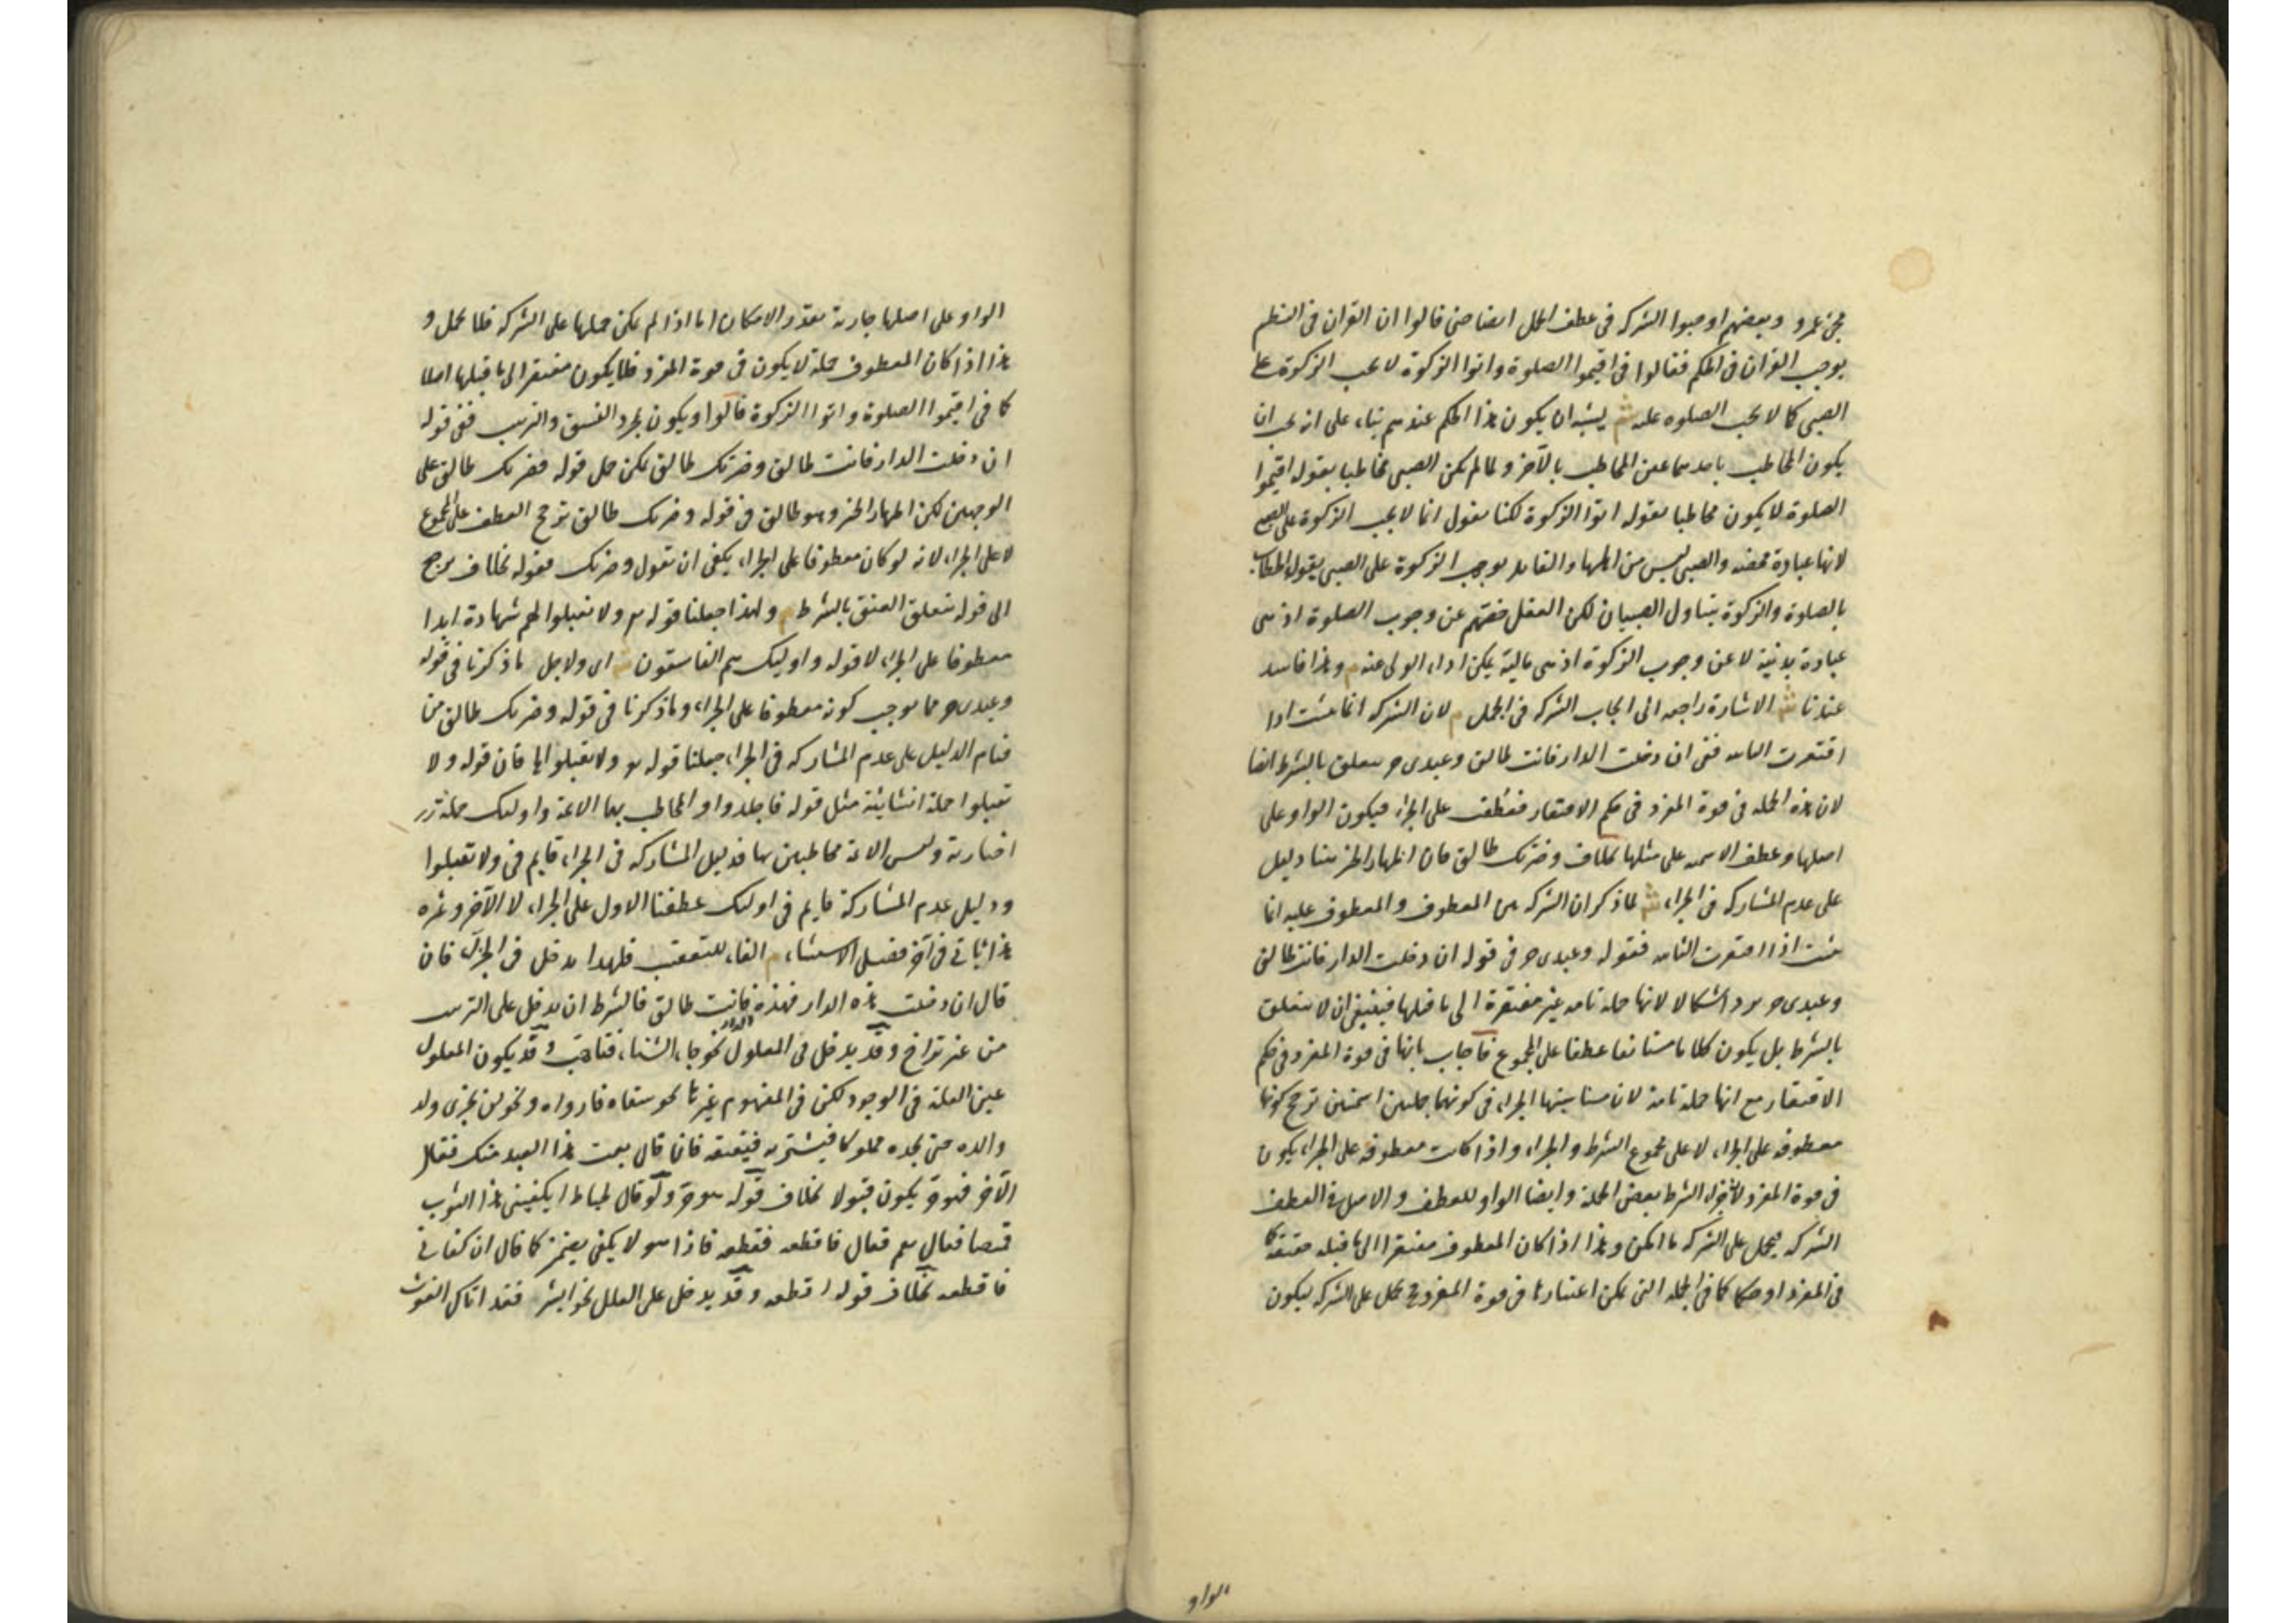 مجئ عمرو وبعضهم اوجبوا الشركة فى عطف الجمل ايضا حتى قالوا ان القران فى النظم
يوجب القران فى الحكم فقالوا فى اقيموا الصلوة واتوا الزكوة لا يجب الزكوة على
الصبى كما لا يجب الصلوه عليه ش يشبه ان يكون هذا الحكم عندهم بناء على انه يجب ان
يكون المخاطب باحدهما عين المخاطب بالآخر ولما لم يكن الصبى مخاطبا بقوله اقيموا
الصلوة لا يكون مخاطبا بقوله اتوا الزكوة لكنا نقول انما لا يجب الزكوة على الصبى
لانها عبادة محضه والصبى ليس من اهلها والقايل بوجوب الزكوة على الصبى يقول الخطاب
بالصلوة والزكوة يتناول الصبيان لكن العقل خصهم عن وجوب الصلوة اذ هى
عبادة بدنية لا عن وجوب الزكوة اذ هى مالية يمكن اداء الولى عنه م وهذا فاسد
عندنا ش الاشارة راجعه الى ايجاب الشركه فى الجمل م لان الشركه انما تثبت اذا
افتقرت الثانيه ففى ان دخلت الدار فانت طالق وعبدى حر يتعلق بالشرط ايضا
لان هذه الجمله فى قوة المفرد فى حكم الافتقار فعطف على الجزاء فيكون الواو على
اصلها وعطف الاسميه على مثلها بخلاف وضرتك طالق فان اظهار الخبر هنا دليل
على عدم المشاركه فى الجزاء ش لما ذكر ان الشركه بين المعطوف والمعطوف عليه انما
تثبت اذا افتقرت الثانيه فقوله وعبدى حر فى قوله ان دخلت الدار فانت طالق
وعبدى حر يرد اشكالا لانها جمله تامه غير مفتقرة الى ما قبلها فينبغى ان لا يتعلق
بالشرط بل يكون كلاما مستانفا عطفا على المجموع فاجاب بانها فى قوة المفرد فى حكم
الافتقار مع انها جملة تامة لان مناسبتها الجزاء فى كونهما جملتين اسميتين ترجح كونها
معطوفه على الجزاء لا على مجموع الشرط والجزاء واذا كانت معطوفه على الجزاء يكون
فى قوة المفرد لان جزاء الشرط بعض الجملة وايضا الواو للعطف والاصل فى العطف
الشركه فيحمل على الشركه ما امكن وهذا اذا كان المعطوف مفتقرا الى ما قبله حقيقة كما
فى المفرد او حكما كما فى الجمله التى يمكن اعتبارها فى قوة المفرد فح يحمل على الشركه ليكون
الواو
الواو على اصلها جارية بقدر الامكان اما اذا لم يكن حملها على الشركه فلا يحمل و
هذا اذا كان المعطوف جملة لا يكون فى قوة المفرد فلا يكون مفتقرا الى ما قبلها اصلا
كما فى اقيموا الصلوة واتوا الزكوة فالواو يكون لمجرد النسق والترتيب ففى قوله
ان دخلت الدار فانت طالق وضرتك طالق يمكن حمل قوله وضرتك طالق على
الوجهين لكن اظهار الخبر وهو طالق فى قوله وضرتك طالق ترجح العطف على المجموع
لا على الجزاء لانه لو كان معطوفا على الجزاء يكفى ان يقول وضرتك فقوله بخلاف يرجع
الى قوله يتعلق العتق بالشرط م ولهذا جعلنا قوله تع ولا تقبلوا لهم شهادة ابدا
معطوفا على الجزاء لا قوله واوليك هم الفاسقون ش اى ولاجل ما ذكرنا فى قوله
وعبدى حر مما يوجب كونه معطوفا على الجزاء وما ذكرنا فى قوله وضرتك طالق من
قيام الدليل على عدم المشاركه فى الجزاء جعلنا قوله تع ولا تقبلوا الخ فان قوله ولا
تقبلوا جملة انشائية مثل قوله فاجلدوا والمخاطب بهما الائمة واوليك جملة
اخبارية وليس الائمة مخاطبين بها فدليل المشاركه فى الجزاء قايم فى ولا تقبلوا
ودليل عدم المشاركة قايم فى اوليك عطفنا الاول على الجزاء لا الآخر وثمرة
هذا ياتى فى آخر فصل الاستثناء م الفاء للتعقيب فلهذا يدخل فى الجزاء فان
قال ان دخلت هذه الدار فهذه الدار فانت طالق فالشرط ان يدخل على الترتيب
من غير تراخ وقد يدخل فى المعلول نحو جاء الشتاء فتاهب وقد يكون المعلول
عين العلة فى الوجود لكن فى المفهوم غيرها نحو سقاه فارواه ونحو لن يجزى ولد
والده حتى يجده مملوكا فيشتريه فيعتقه فان قال بعت هذا العبد منك فقال
الآخر فهو حر يكون قبولا بخلاف قوله هو حر ولو قال لخياط ايكفينى هذا الثوب
قميصا فقال نعم فقال فاقطعه فقطعه فاذا هو لا يكفى يضمن كما قال ان كفانى
فاقطعه بخلاف قوله اقطعه وقد يدخل على العلل نحو ابشر فقد اتاك الغوث